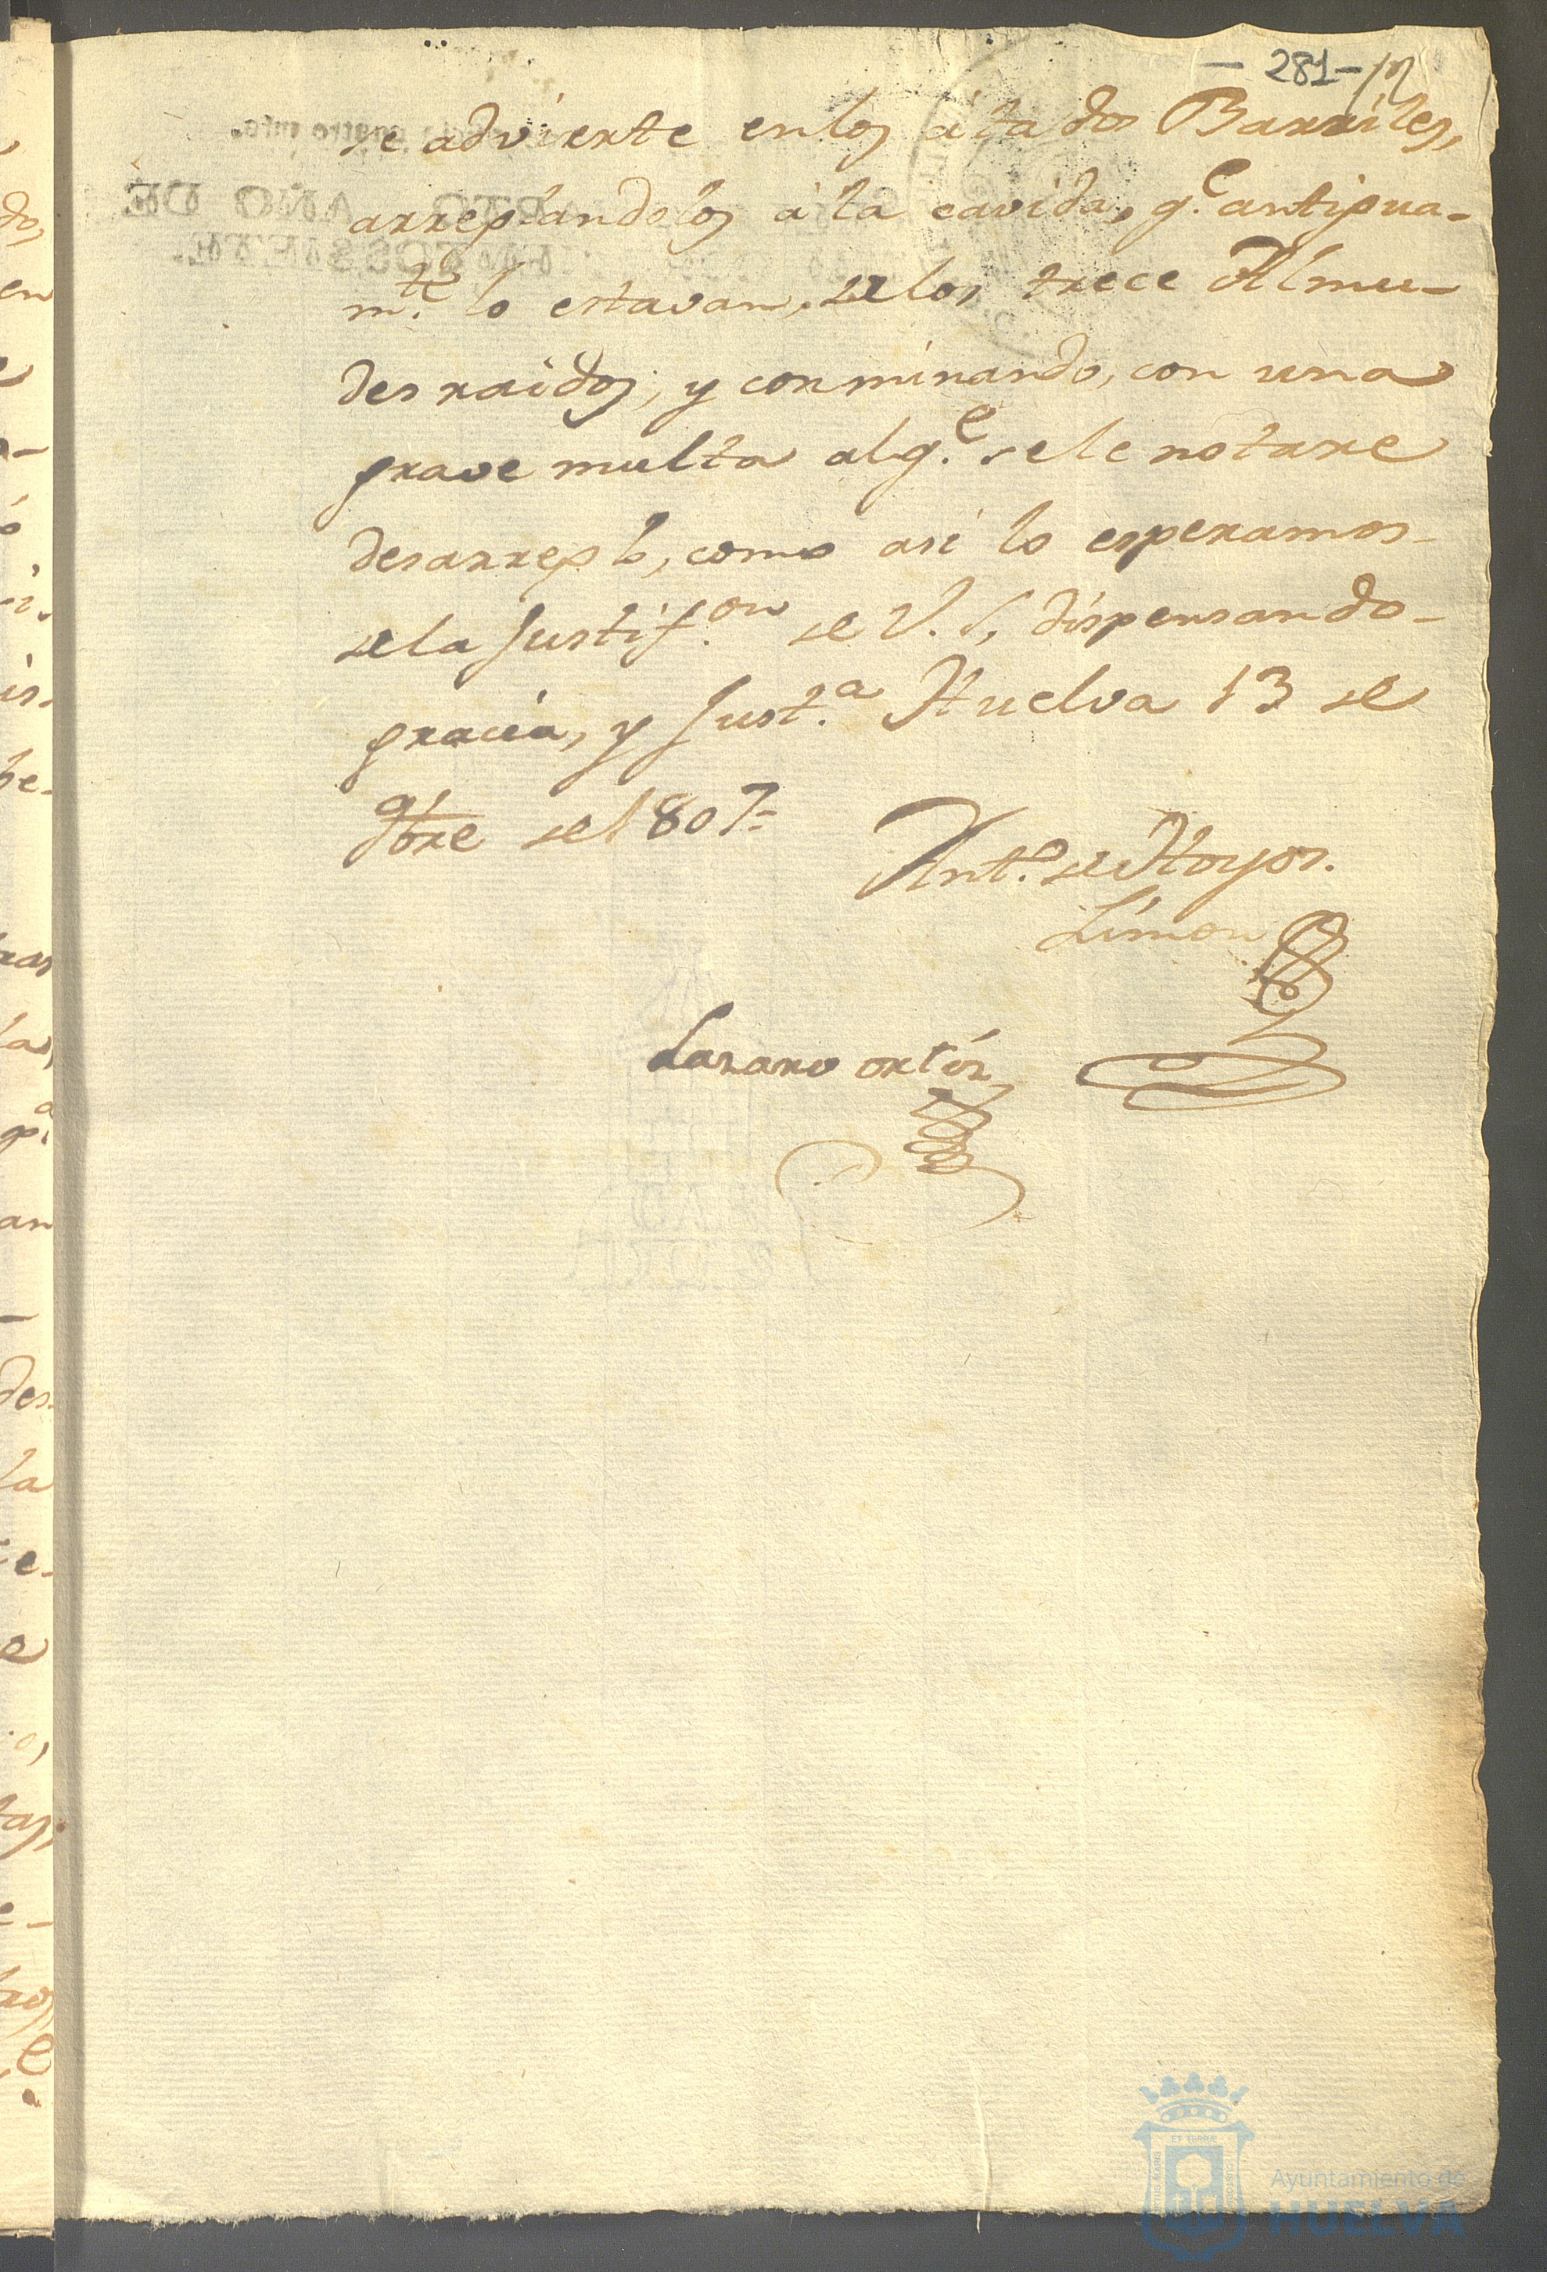 - 281-
se advierte en los citados Barriles,
arreglandolos à la cavida, q.e antigua-
m.te lo estavan, de los trece Almu-
des raidos; y conminando, con una
grave multa al q.e se le notare
desarreglo, como asi lo esperamos
de la Justif.on de V. S. dispensando
gracia, y Just.a Huelva 13 de
9bre de 1807=
Ant.o de Hoyos.
Limon
Lazaro ortiz
Ayuntamiento de
HUELVA